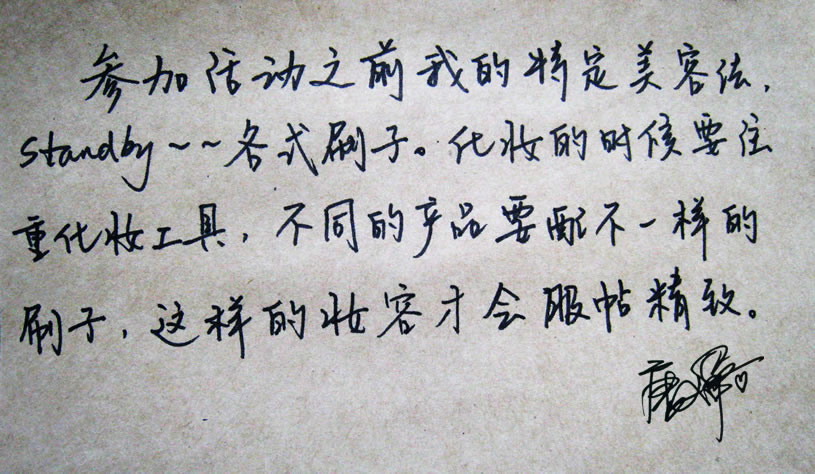 参加活动之前我的特定美容法，
Standby~~各式刷子。化妆的时候要注
重化妆工具，不同的产品要配不一样的
刷子，这样的妆容才会服帖精致。